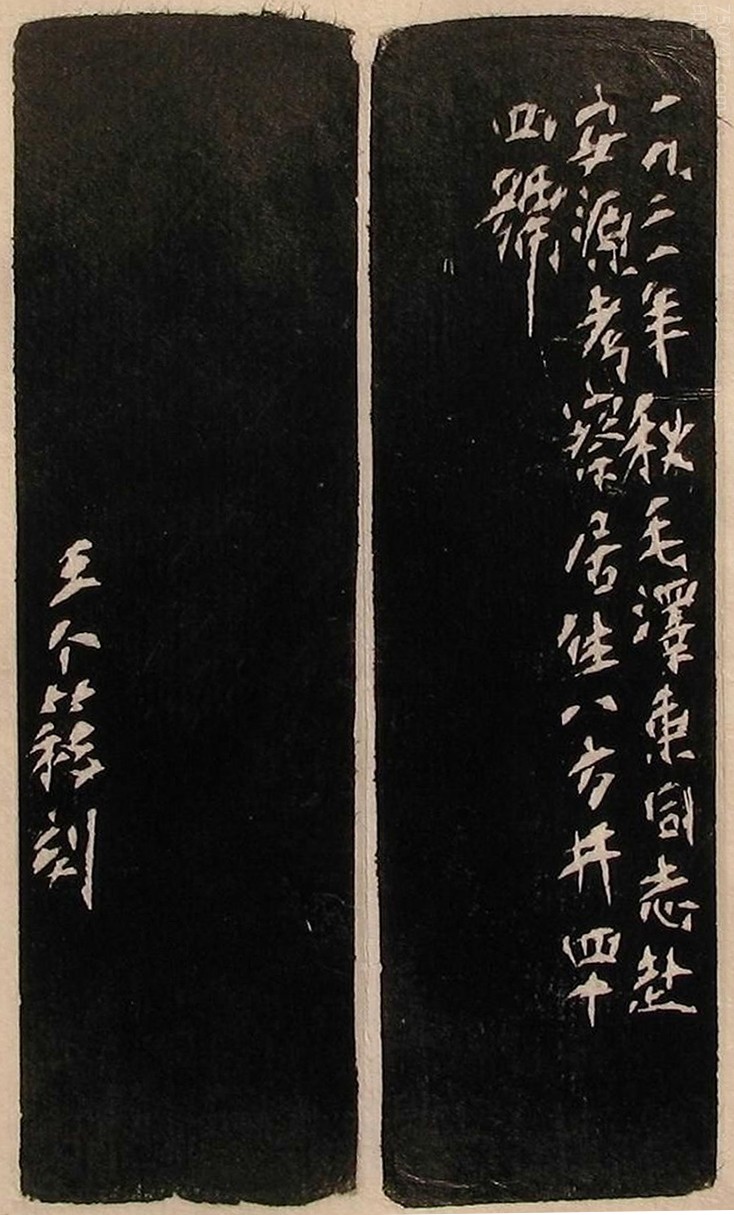 一九二一年秋毛澤東同志赴
安源考察居住八方井四十
四號
王个簃刻